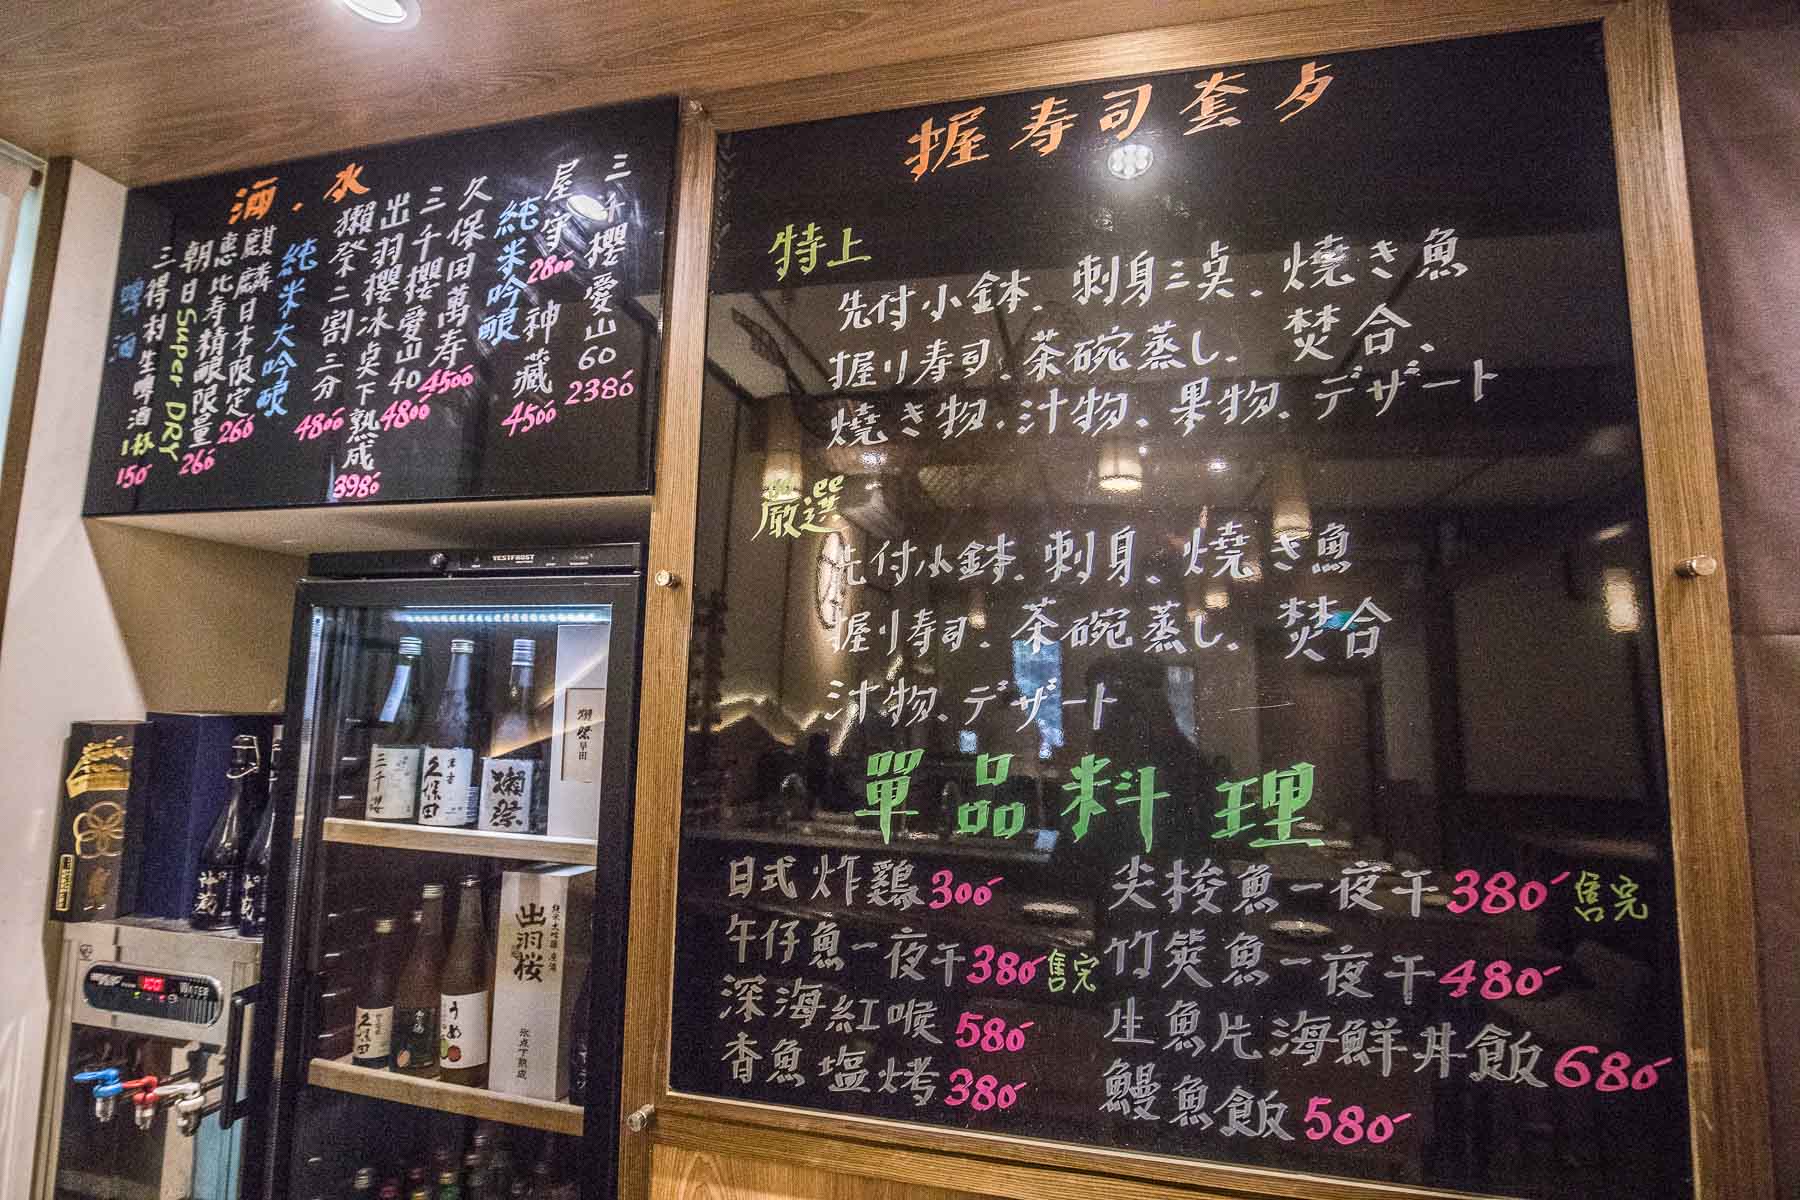 酒．水
三千櫻愛山60 2380
屋守 2800
神藏 4500
純米吟釀
久保田萬寿 4500
三千櫻愛山40 4800
出羽櫻冰点下熟成 3980
獺祭二割三分 4800
純米大吟釀
麒麟日本限定 260
惠比寿精釀限量 260
朝日Super DRY
三得利生啤酒1杯 150
啤酒
握寿司套夕
特上
先付小鉢、刺身三点、燒き魚
握り寿司、茶碗蒸し、焚合、
燒き物、汁物、果物、デザート
嚴選
先付小鉢、刺身、燒き魚
握り寿司、茶碗蒸し、焚合
汁物、デザート
單品料理
日式炸鷄300
午仔魚一夜干380售完
深海紅喉580
香魚塩烤380
尖梭魚一夜干380售完
竹筴魚一夜干480
生魚片海鮮丼飯680
鰻魚飯580
VESTFROST
三千櫻
久保田
獺祭
獺祭
早田
神藏
出羽桜
純米大吟釀
氷点下熟成
久保田
うめ
100
WATER